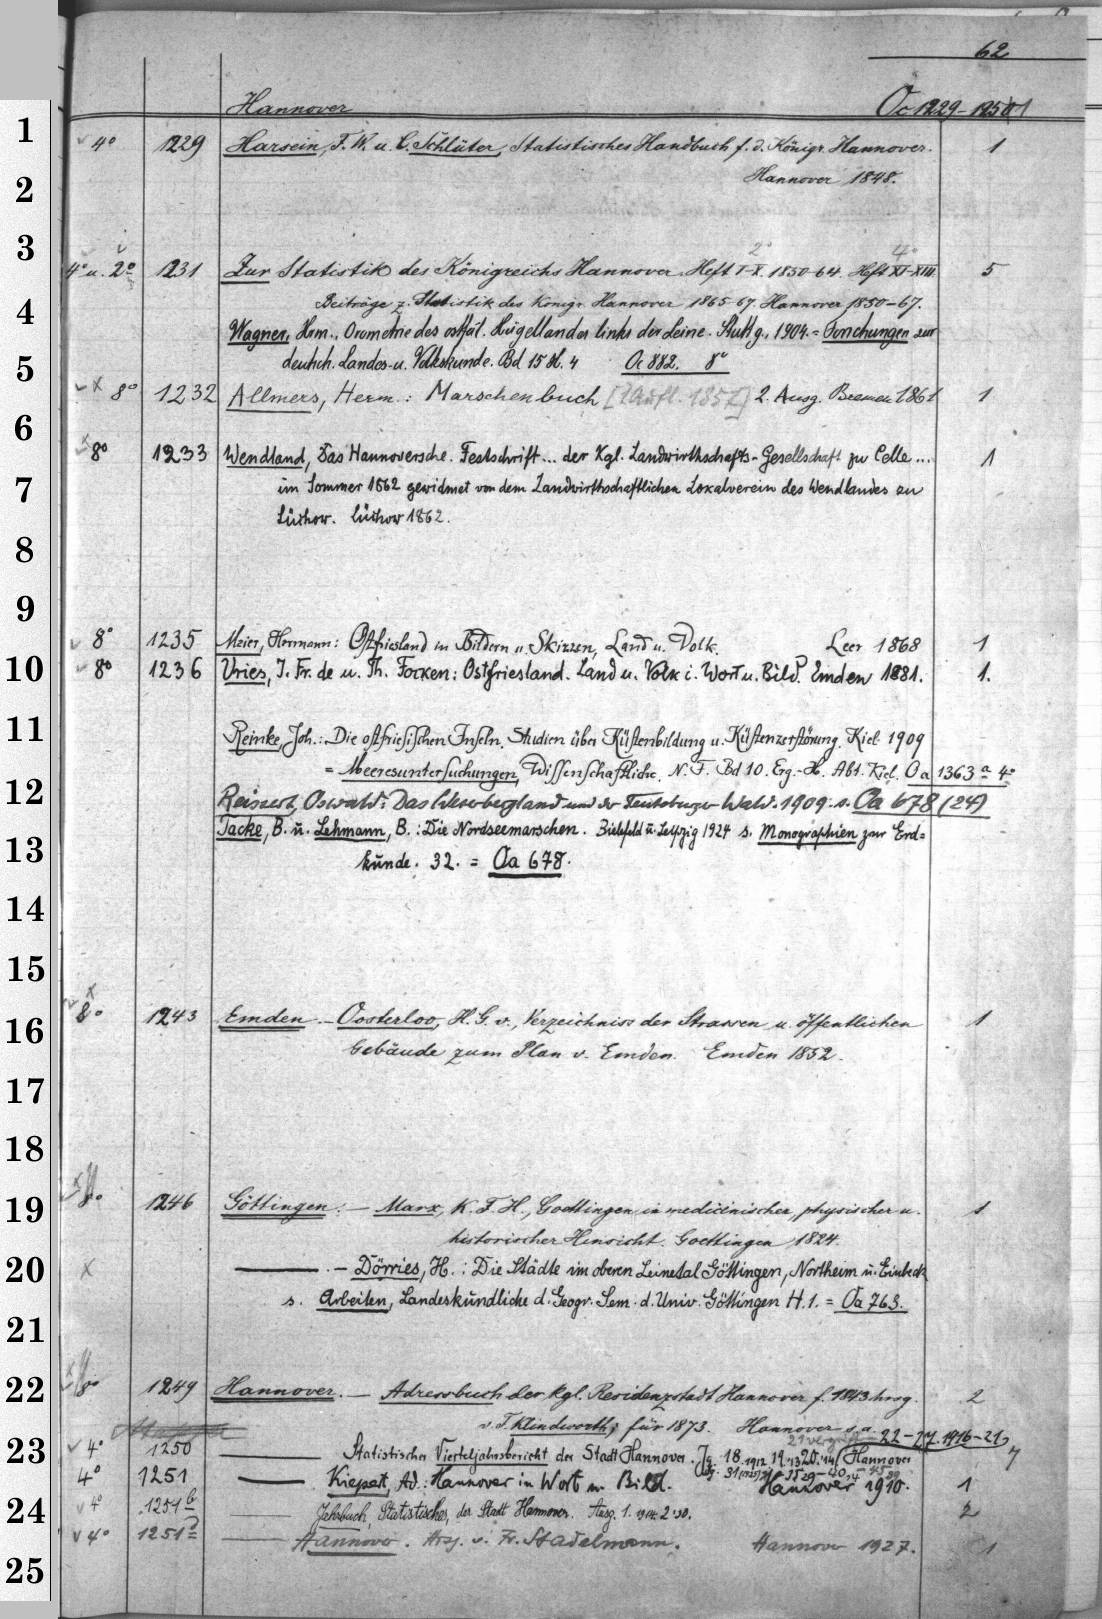 62
Hannover Oc 1229-1251
1
4° 1229 Harsein, F. W. u. C. Schlüter, Statistisches Handbuch f. d. Königr. Hannover. 1
2
Hannover 1848.
3
2° 4°
4° u. 2° 1231 Zur Statistik des Königreichs Hannover. Heft I-X. 1850-64. Heft XI-XIII. 5
4
Beiträge z. Statistik des Königr. Hannover 1865-67. Hannover 1850-67.
Wagner, Hrm., Orometrie des ostfäl. Hügellandes links der Leine. Stuttg., 1904. = Forschungen zur
5
deutsch. Landes- u. Volkskunde. Bd 15 H. 4 Oc 882. 8°
x 8° 1232 Allmers, Herm.: Marschenbuch [1. Aufl. 1857] 2. Ausg. Bremen 1861 1
6
x 8° 1233 Wendland, Das Hannoversche. Festschrift ... der Kgl. Landwirthschafts-Gesellschaft zu Celle ... 1
7
im Sommer 1862 gewidmet von dem Landwirthschaftlichen Lokalverein des Wendlandes zu
Lüchow. Lüchow 1862.
8
9
8° 1235 Meier, Hermann: Ostfriesland in Bildern u. Skizzen, Land u. Volk. Leer 1868 1
10
8° 1236 Vries, J. Fr. de u. Th. Focken: Ostfriesland. Land u. Volk i. Wort u. Bild. Emden 1881. 1.
11
Reinke, Joh.: Die ostfriesischen Inseln. Studien über Küstenbildung u. Küstenzerstörung. Kiel 1909
= Meeresuntersuchungen, Wissenschaftliche. N. F. Bd 10. Erg.-H. Abt. Kiel. Oa 1363a 4°
12
Reissert, Oswald: Das Weserbergland und der Teutoburger Wald. 1909. s. Oa 678 (24)
Tacke, B. u. Lehmann, B.: Die Nordseemarschen. Bielefeld u. Leipzig 1924 s. Monographien zur Erd=
13
kunde. 32. = Oa 678.
14
15
x 8° 1243 Emden. - Oosterloo, H. G. v., Verzeichniss der Strassen u. öffentlichen 1
16
Gebäude zum Plan v. Emden. Emden 1852.
17
18
x 8° 1246 Göttingen: - Marx, K. F. H., Goettingen in medicinischer, physischer u. 1
19
historischer Hinsicht. Goettingen 1824.
20
x - Dörries, H.: Die Städte im oberen Leinetal Göttingen, Northeim u. Einbeck
s. Arbeiten, Landeskundliche d. Geogr. Sem. d. Univ. Göttingen H. 1. = Oa 763.
21
22
x 8° 1249 Hannover. - Adressbuch der kgl. Residenzstadt Hannover f. 1843 hrsg. 2
v. F. Klindworth; für 1873. Hannover s. a.
22-27. 1916-21,
23
4° 1250 Statistischer Vierteljahrsbericht der Stadt Hannover. Jg. 18. 1912 19. '13 20. '14 Hannover 7
4° 1251 Kiepert, Ad.: Hannover in Wort u. Bild. Hannover 1910. 1
24
4° 1251b Jahrbuch, Statistisches, der Stadt Hannover. Ausg. 1. 1914. 2 '30. 2
4° 1251 Hannover. Hrsg. v. Fr. Stadelmann. Hannover 1927. 1
25